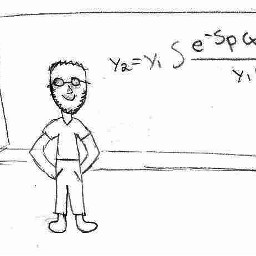 y₂=y₁ ∫ e^-∫p(x
y₁